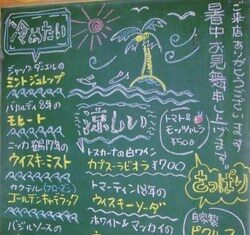 ご来店ありがとうございます
暑中お見舞申し上げます。
冷めたい
ジャックダニエルの
ミントジュレップ
バカルディ8年の
モヒート
ニッカ鶴17年の
ウイスキーミスト
カクテル(フローズン)
ゴールデンキャデラック
バジルソースの
涼しい
トスカーナの白ワイン
カプスーラビオラ ¥700
トマーティン12年の
ウイスキーソーダ
ホワイト&マッカイの
トマト&
モッツァレラ
¥500
さっぱり
自家製
ピクルス